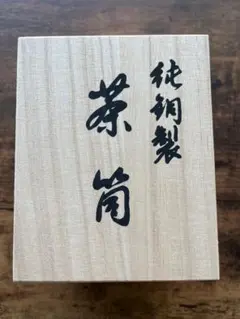 純銅製
茶筒